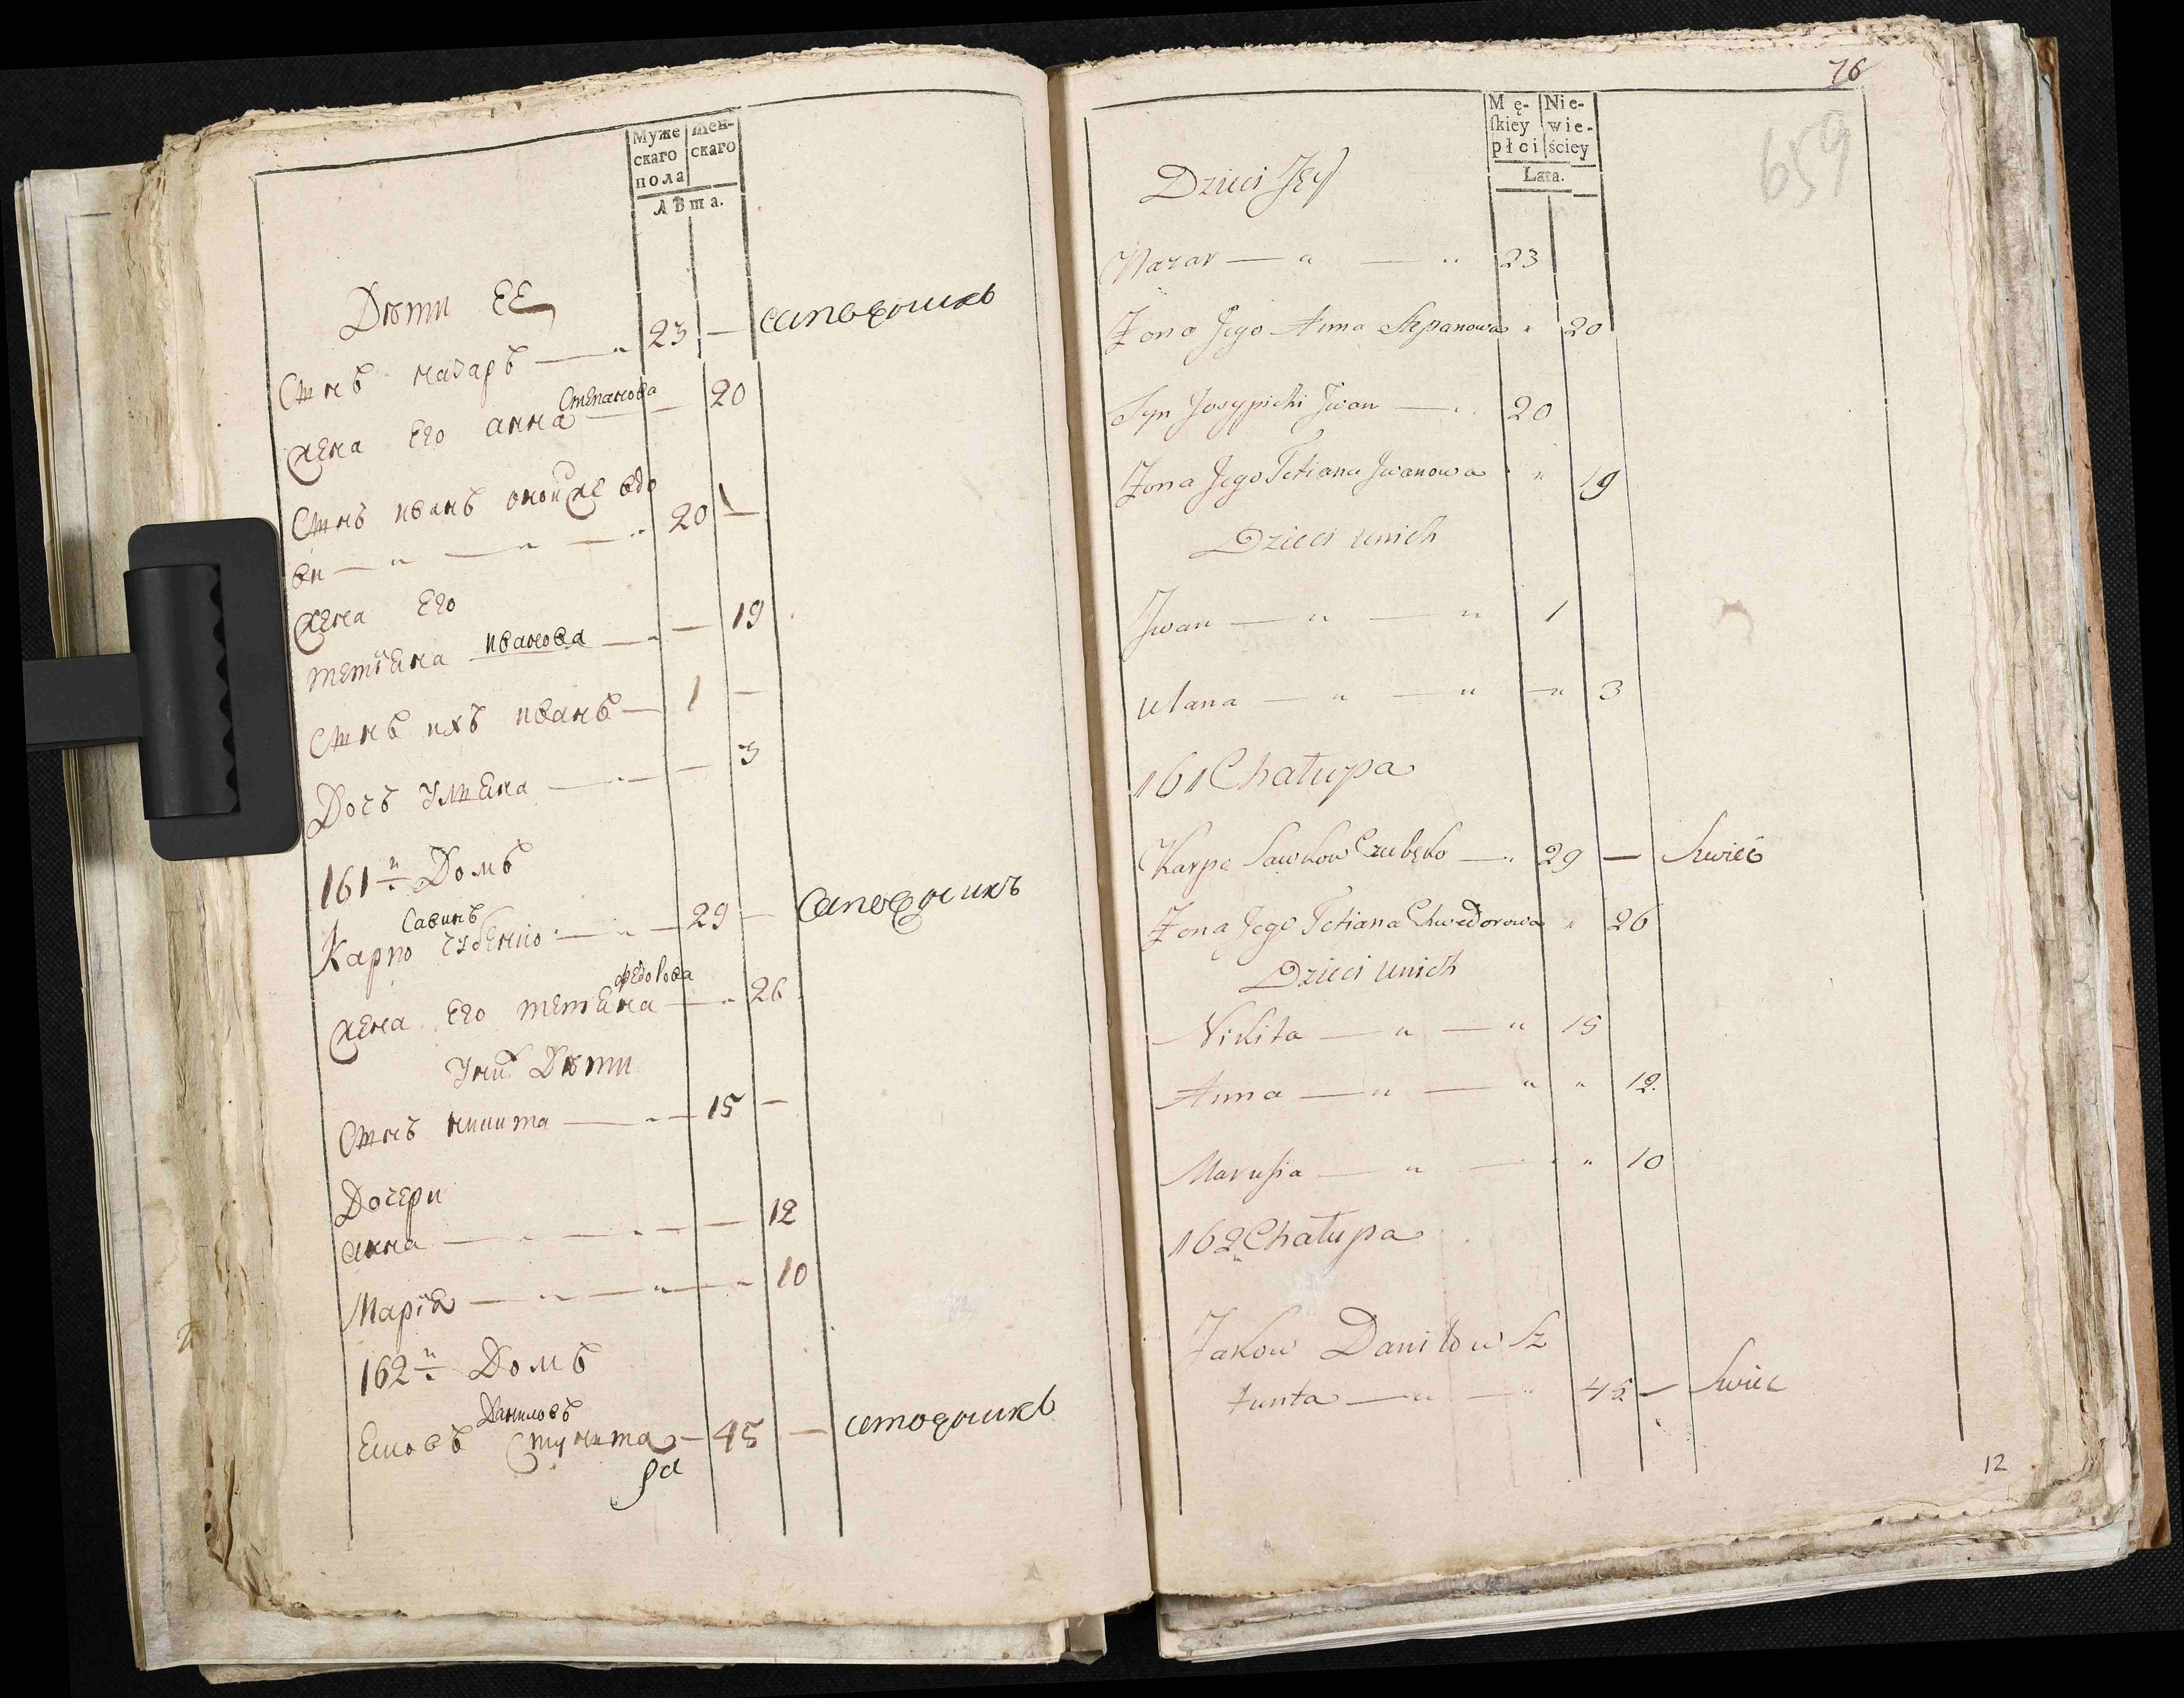 Муже
скаго
пола
жен-
скаго
лѣта.
Дѣти ЕЕ
Сынъ назаръ — " 23 — сапожникъ
жена Его анна Степанова — 20
Сынъ иванъ оной же вдо
ви — " — " — " 20 —
жена Его
тетіяна иванова — " — 19
Сынъ ихъ иванъ — 1 —
Дочъ Улияна — " — 3
161й Домъ
Карпо Савинъ чубенко — " — 29 — Сапожникъ
жена Его тетяна федорова — " 26
У них Дѣти
Сынъ никита — " — 15 —
Дочери
анна — " — " — 12
Марія — " — " — " 10
162й Домъ
Ековъ Даниловъ
Стунита — 45 —
76
659
Mę-
skiey
płci
Nie-
wie-
ściey
Lata.
Dzieci Jey
Nazar — " — " 23
Zona Jego Anna Stepanowa " 20
Syn Josypichi Jwan — " 20
Zona Jego Tetiana Jwanowa " 19
Dzieci unich
Jwan — " — " 1
Ulana — " — " — " 3
161 Chałupa
Karpo Sawkow Czubęko — " 29 — Szwiec
Zona Jego Tetiana Chwedorowa " 26
Dzieci unich
Nikita — " — " 15
Anna — " — " " 12.
Marusia — " — " " 10
162 Chałupa
Jakow Daniłow Sz
tunta — " — " 45 — Szwiec
12